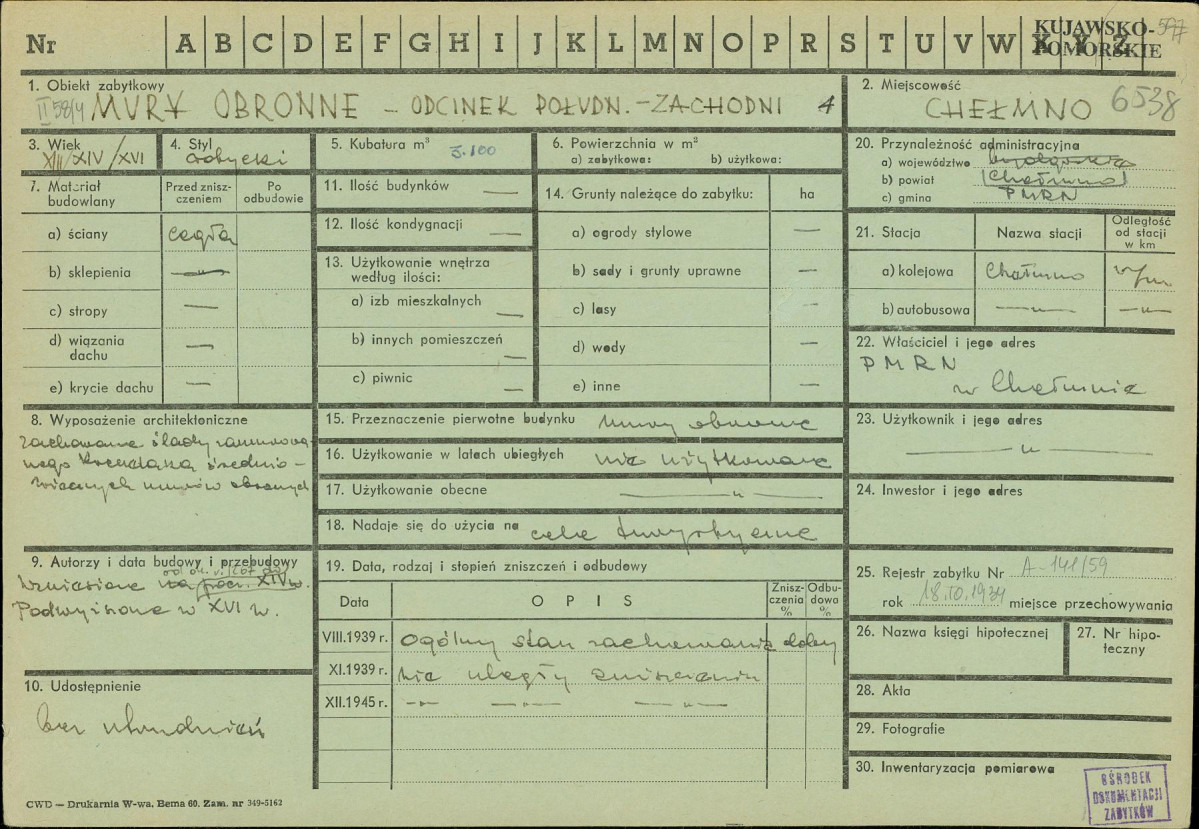 Nr A B C D E F G H I J K L M N O P R S T U V W X Y Z
KUJAWSKO-
POMORSKIE
577
1. Obiekt zabytkowy
II 58/4 MURY OBRONNE – ODCINEK POŁUDN. – ZACHODNI 4
2. Miejscowość
CHEŁMNO 6538
3. Wiek
XIII/XIV/XVI
4. Styl
gotycki
5. Kubatura m³ 3.100
6. Powierzchnia w m²
a) zabytkowa: b) użytkowa:
7. Materiał budowlany
Przed zniszczeniem
Po odbudowie
a) ściany cegła
b) sklepienia —"—
c) stropy —
d) wiązania dachu —
e) krycie dachu —
8. Wyposażenie architektoniczne
zachowane ślady
średnio-
wiecznych murów obronnych
9. Autorzy i data budowy i przebudowy
Wzniesione na pocz. XIV w.
Podwyższone w XVI w.
10. Udostępnienie
bez utrudnień
11. Ilość budynków —
12. Ilość kondygnacji —
13. Użytkowanie wnętrza według ilości:
a) izb mieszkalnych —
b) innych pomieszczeń —
c) piwnic —
14. Grunty należące do zabytku: ha
a) ogrody stylowe —
b) sady i grunty uprawne —
c) lasy —
d) wody —
e) inne —
15. Przeznaczenie pierwotne budynku mury obronne
16. Użytkowanie w latach ubiegłych nie użytkowane
17. Użytkowanie obecne —"—
18. Nadaje się do użycia na cele turystyczne
19. Data, rodzaj i stopień zniszczeń i odbudowy
Data OPIS Zniszczenia % Odbudowa %
VIII.1939 r. Ogólny stan zachowania dobry
XI.1939 r. nie uległy zniszczeniu
XII.1945 r. —"— —"— —"—
20. Przynależność administracyjna
a) województwo bydgoskie
b) powiat Chełmno
c) gmina PMRN
21. Stacja
Nazwa stacji
Odległość od stacji w km
a) kolejowa Chełmno w/m
b) autobusowa —"— —"—
22. Właściciel i jego adres
PMRN
w Chełmnie
23. Użytkownik i jego adres
—"—
24. Inwestor i jego adres
25. Rejestr zabytku Nr A-141/59
rok 18.10.1934 miejsce przechowywania
26. Nazwa księgi hipotecznej
27. Nr hipoteczny
28. Akta
29. Fotografie
30. Inwentaryzacja pomiarowa
OŚRODEK
DOKUMENTACJI
ZABYTKÓW
CWD — Drukarnia W-wa, Bema 60. Zam. nr 349-5162